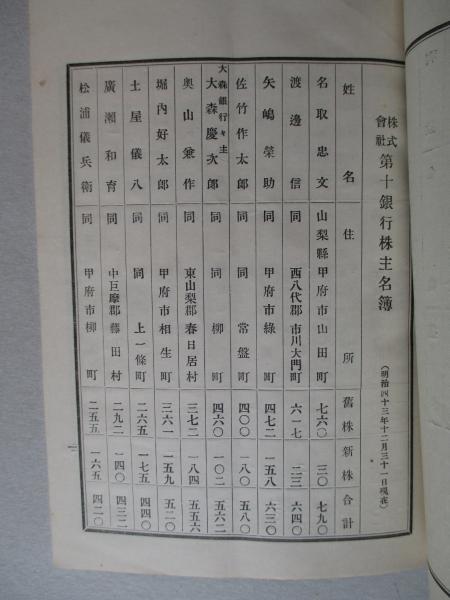 株式會社 第十銀行株主名簿 (明治四十三年十二月三十一日現在)
姓名 住所 舊株 新株 合計
名取忠文 山梨縣甲府市山田町 七六〇 三〇 七九〇
渡邊信 同 西八代郡市川大門町 六一七 二三 六四〇
矢嶋榮助 同 甲府市綠町 四七二 一五八 六三〇
佐竹作太郎 同 同 常盤町 四〇〇 一八〇 五八〇
大森銀行々主 大森慶次郎 同 同 柳町 四六〇 一〇二 五六二
奥山兼作 同 東山梨郡春日居村 三七二 一八四 五五六
堀内好太郎 同 甲府市相生町 三六一 一五九 五二〇
土屋儀八 同 同 上一條町 二六五 一七五 四四〇
廣瀬和育 同 中巨摩郡藤田村 二九二 一四〇 四三二
松浦儀兵衛 同 甲府市柳町 二五五 一六五 四二〇